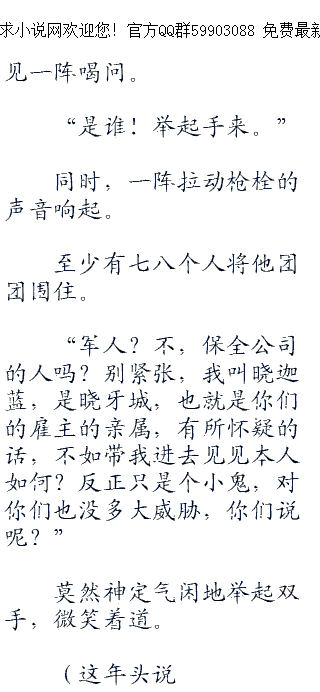 求小说网欢迎您！官方QQ群59903088 免费最新
见一阵喝问。
“是谁！举起手来。”
同时，一阵拉动枪栓的
声音响起。
至少有七八个人将他团
团围住。
“军人？不，保全公司
的人吗？别紧张，我叫晓迦
蓝，是晓牙城，也就是你们
的雇主的亲属，有所怀疑的
话，不如带我进去见见本人
如何？反正只是个小鬼，对
你们也没多大威胁，你们说
呢？”
莫然神定气闲地举起双
手，微笑着道。
（这年头说